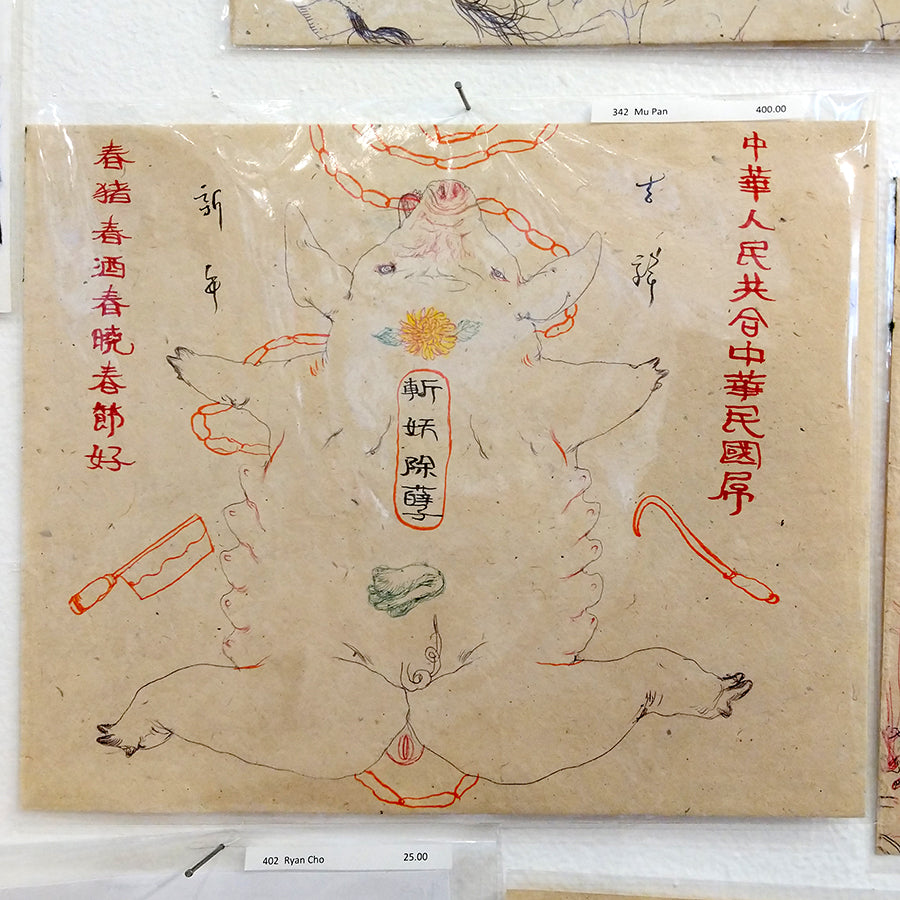 342 Mu Pan 400.00
中華人民共合中華民國屌
吉祥
斬妖除孽
新年
春猪春酒春曉春節好
402 Ryan Cho 25.00